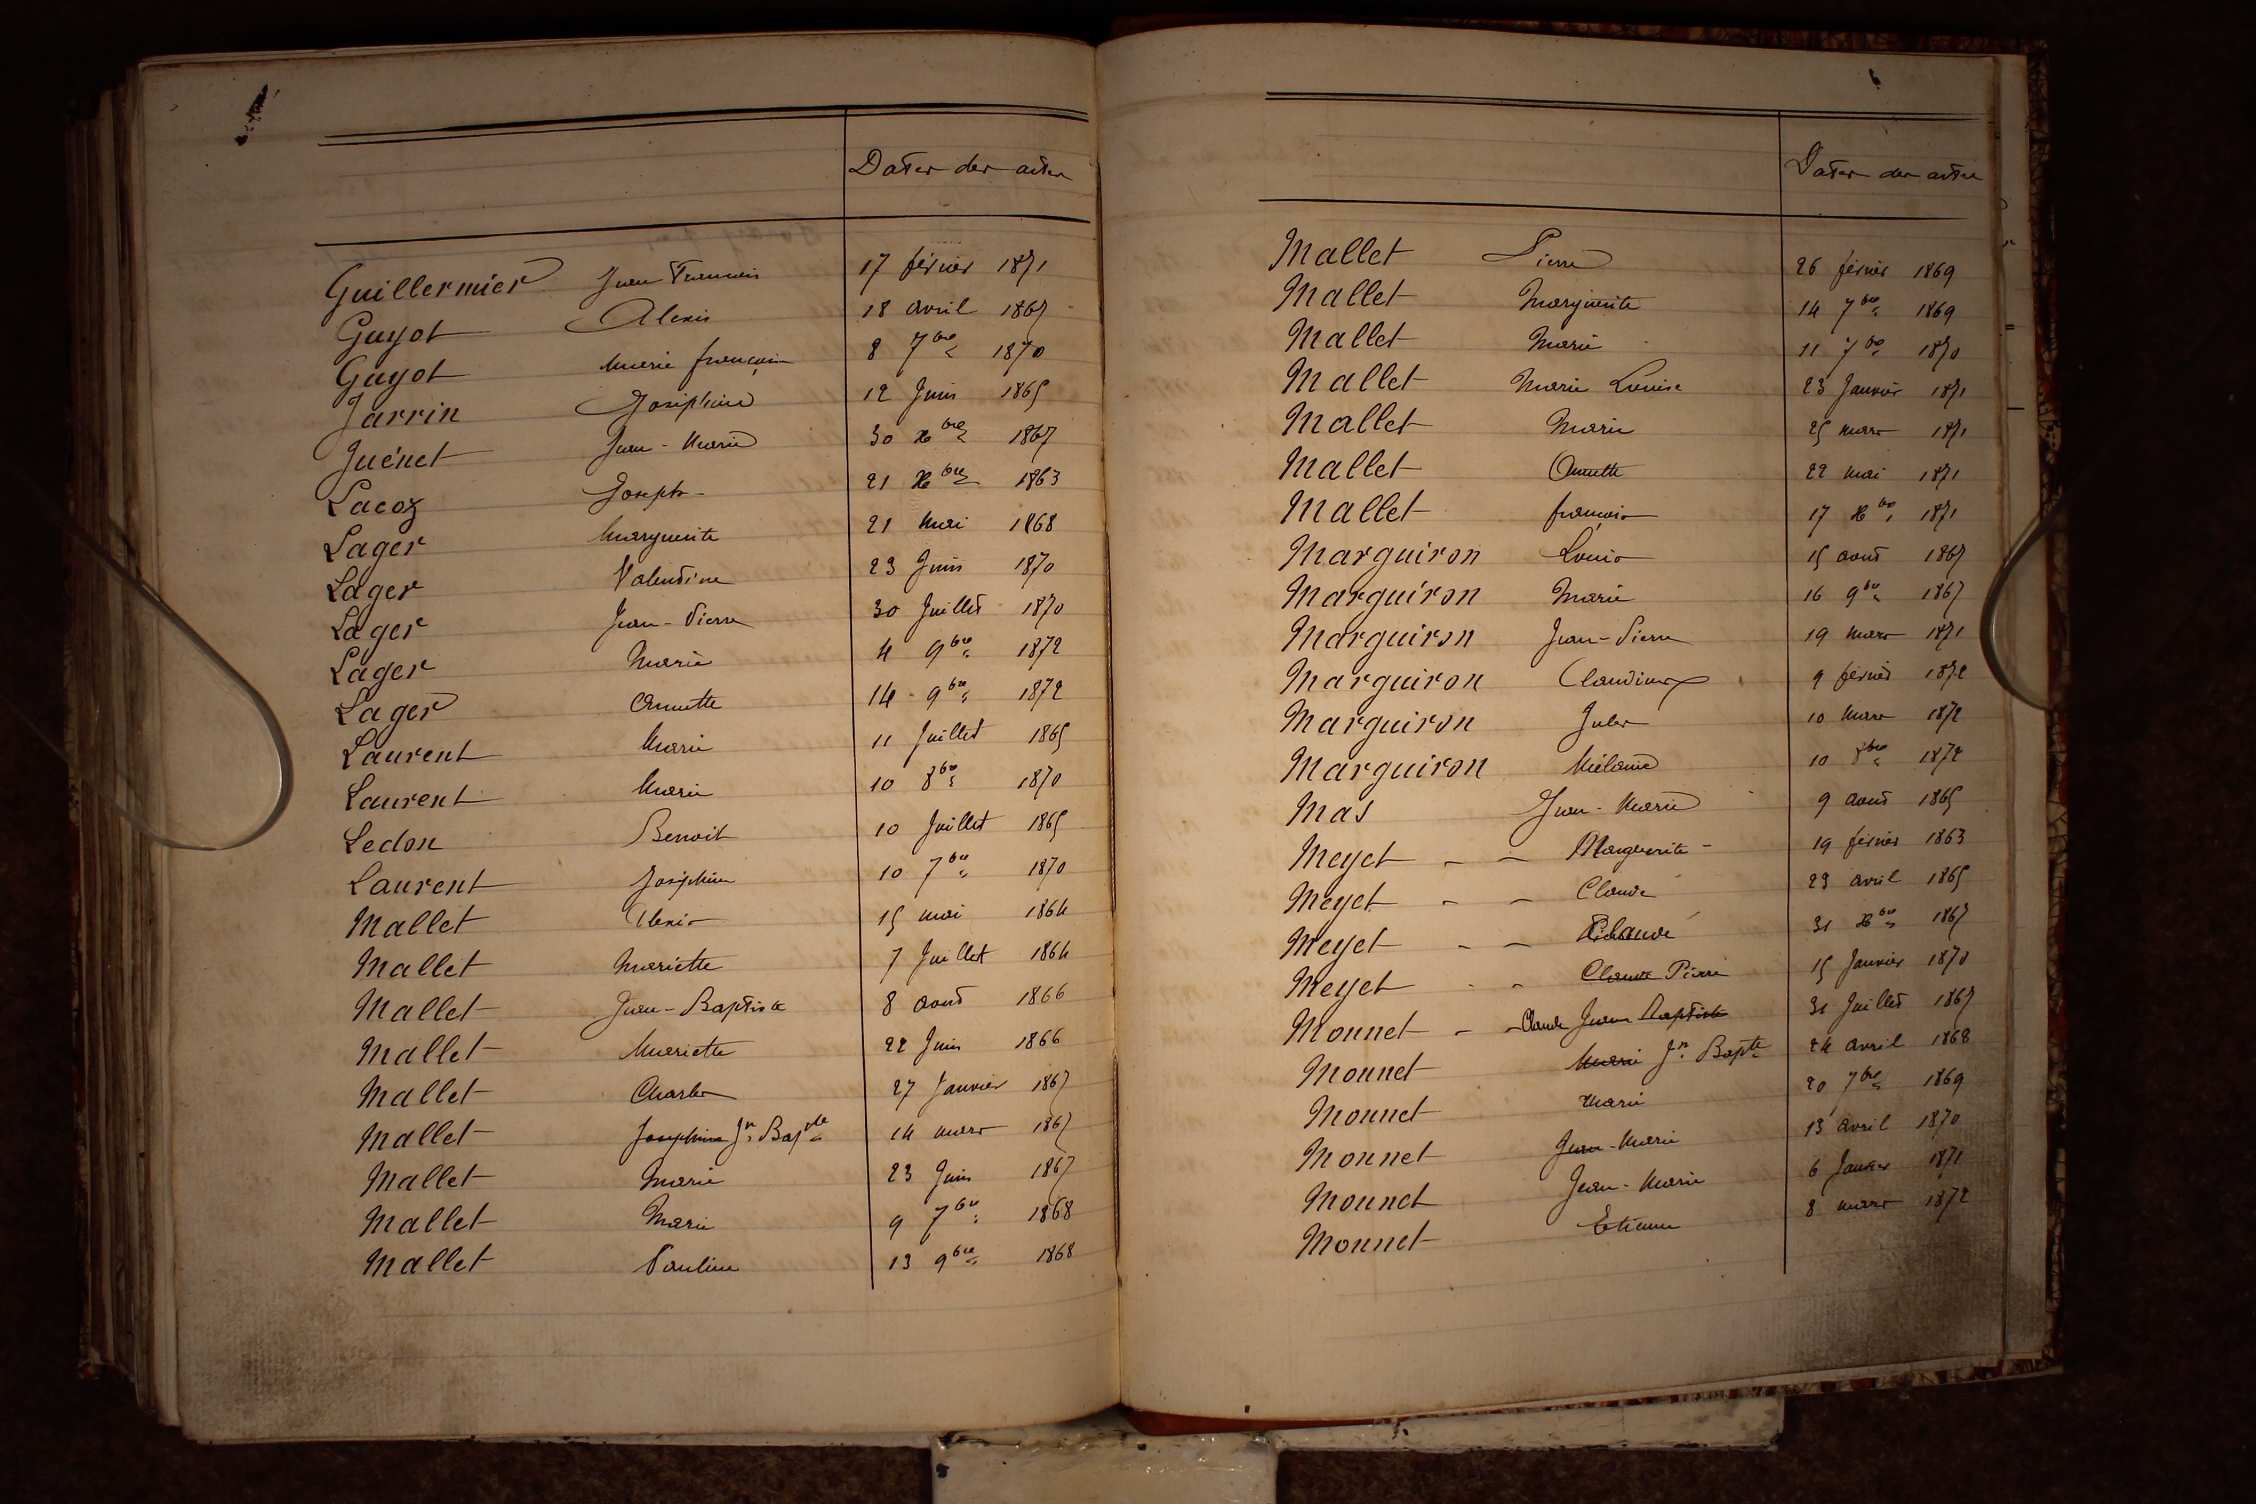 Dates des actes
Guillermier Jean François 17 février 1871
Guyot Alexis 18 avril 1867
Guyot Marie françoise 8 7bre 1870
Jarrin Joséphine 12 Juin 1865
Juénet Jean-Marie 30 Xbre 1867
Lacoz Joseph 21 Xbre 1863
Lager Marguerite 21 Mai 1868
Lager Valentine 23 Juin 1870
Lager Jean-Pierre 30 Juillet 1870
Lager Marie 4 9bre 1872
Lager Annette 14 9bre 1872
Laurent Marie 11 Juillet 1865
Laurent Marie 10 8bre 1870
Ledon Benoit 10 Juillet 1865
Laurent Joséphine 10 7bre 1870
Mallet Alexis 15 mai 1864
Mallet Mariette 7 Juillet 1864
Mallet Jean-Baptiste 8 août 1866
Mallet Mariette 22 Juin 1866
Mallet Charles 27 Janvier 1867
Mallet Joséphine Jn Bapte 14 mars 1867
Mallet Marie 23 Juin 1867
Mallet Marie 9 7bre 1868
Mallet Pauline 13 9bre 1868
Dates des actes
Mallet Pierre 26 février 1869
Mallet Marguerite 14 7bre 1869
Mallet Marie 11 7bre 1870
Mallet Marie Louise 23 Janvier 1871
Mallet Marie 25 mars 1871
Mallet Annette 22 mai 1871
Mallet françois 17 Xbre 1871
Marguiron Louis 15 août 1867
Marguiron Marie 16 9bre 1867
Marguiron Jean-Pierre 19 mars 1871
Marguiron Claudine 9 février 1872
Marguiron Jules 10 Mars 1872
Marguiron Mélanie 10 8bre 1872
Mas Jean-Marie 9 août 1865
Meyet - - Marguerite - 19 février 1863
Meyet - - Claude 23 avril 1865
Meyet - - Claude 31 Xbre 1867
Meyet - - Claude Pierre 15 Janvier 1870
Monnet - - Claude Jean Baptiste 31 Juillet 1867
Monnet Marie Jn Bapte 24 avril 1868
Monnet Marie 20 7bre 1869
Monnet Jean-Marie 13 avril 1870
Monnet Jean-Marie 6 Janvier 1871
Monnet Etienne 8 mars 1872